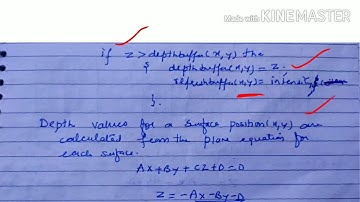 Made with KINEMASTER
if z > depthbuffer(x,y) the
{ depthbuffer(x,y) = z;
refreshbuffer(x,y) = intensity
}.
Depth values for a surface position(x,y) are
calculated from the plane equation for
each surface.
Ax+By+Cz+D=0
z = -Ax-By-D